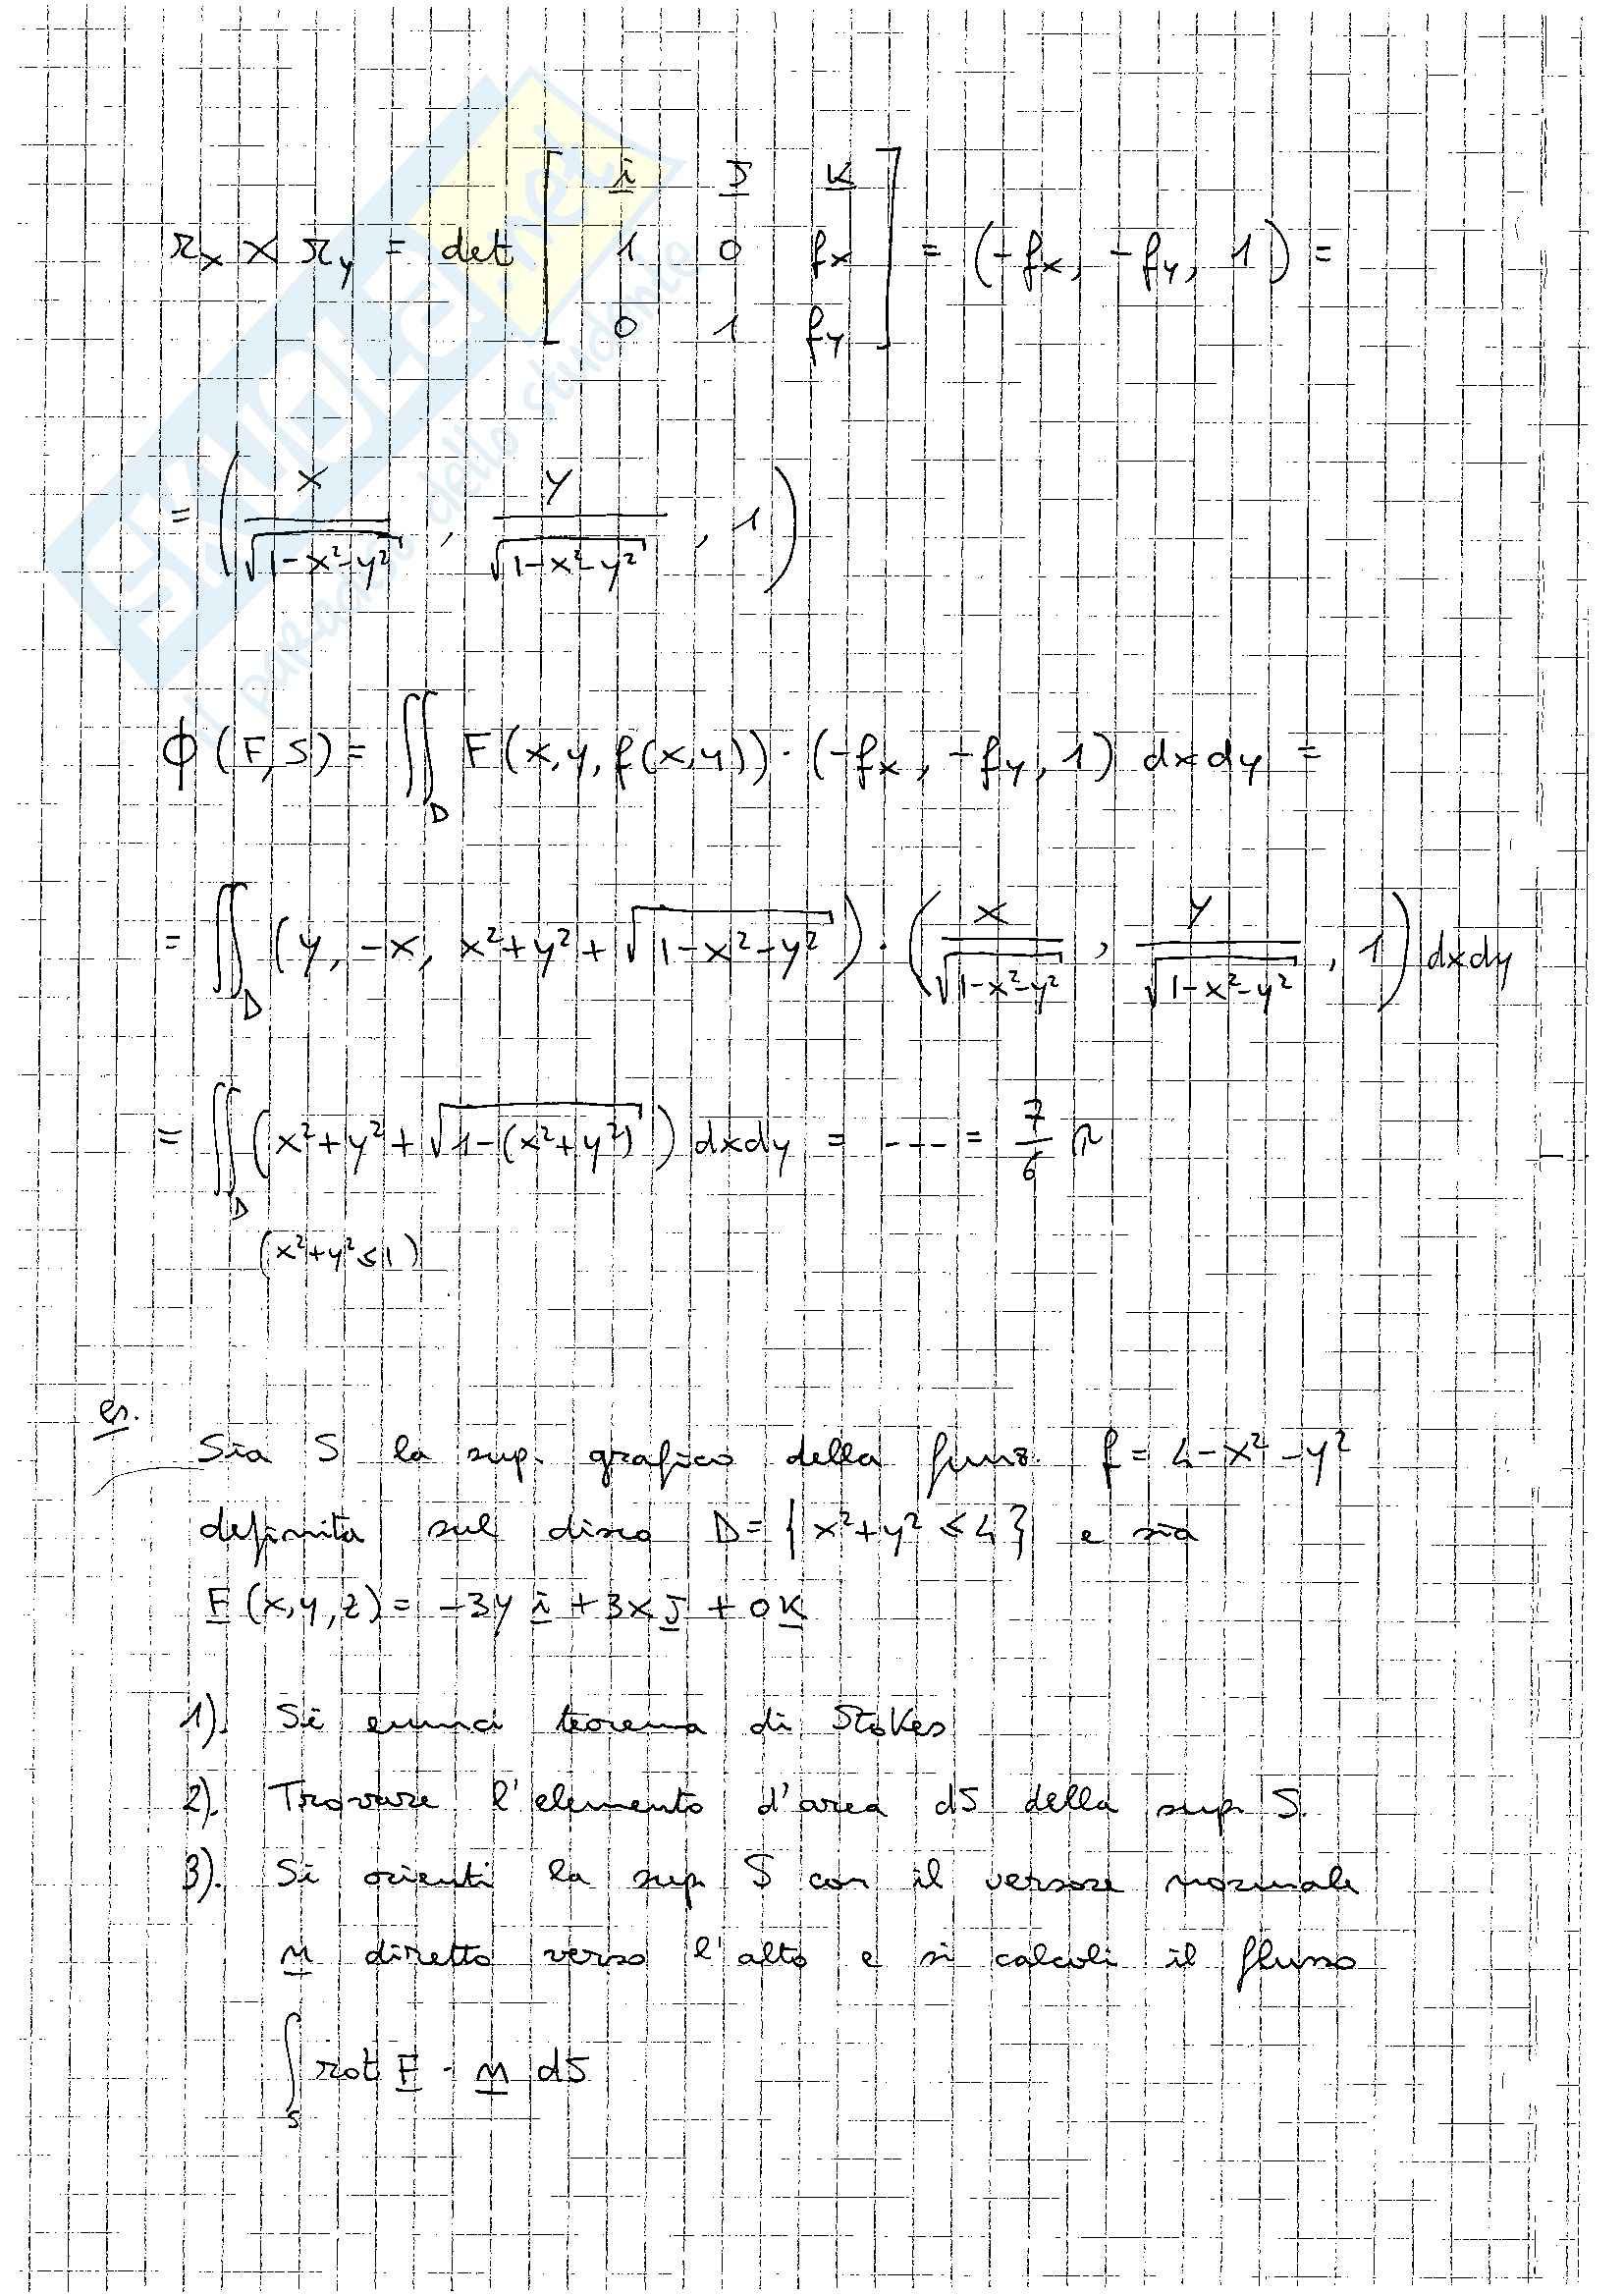 r_x × r_y = det [ i j k ; 1 0 f_x ; 0 1 f_y ] = (-f_x, -f_y, 1) =
= ( x/√(1-x²-y²) , y/√(1-x²-y²) , 1 )
Φ(F,S) = ∬_D F(x,y,f(x,y)) · (-f_x, -f_y, 1) dxdy =
= ∬_D (y, -x, x²+y²+√(1-x²-y²)) · ( x/√(1-x²-y²) , y/√(1-x²-y²) , 1 ) dxdy
= ∬_D (x²+y²+√(1-(x²+y²))) dxdy = --- = 7/6 π
(x²+y²≤1)
es.
Sia S la sup. grafico della funz. f = 4-x²-y²
definita sul disco D = {x²+y² ≤ 4} e sia
F(x,y,z) = -3y i + 3x j + 0 k
1). Si enunci teorema di Stokes
2). Trovare l'elemento d'area dS della sup. S.
3). Si orienti la sup S con il versore normale
n diretto verso l'alto e si calcoli il flusso
∫_S rot F · n dS